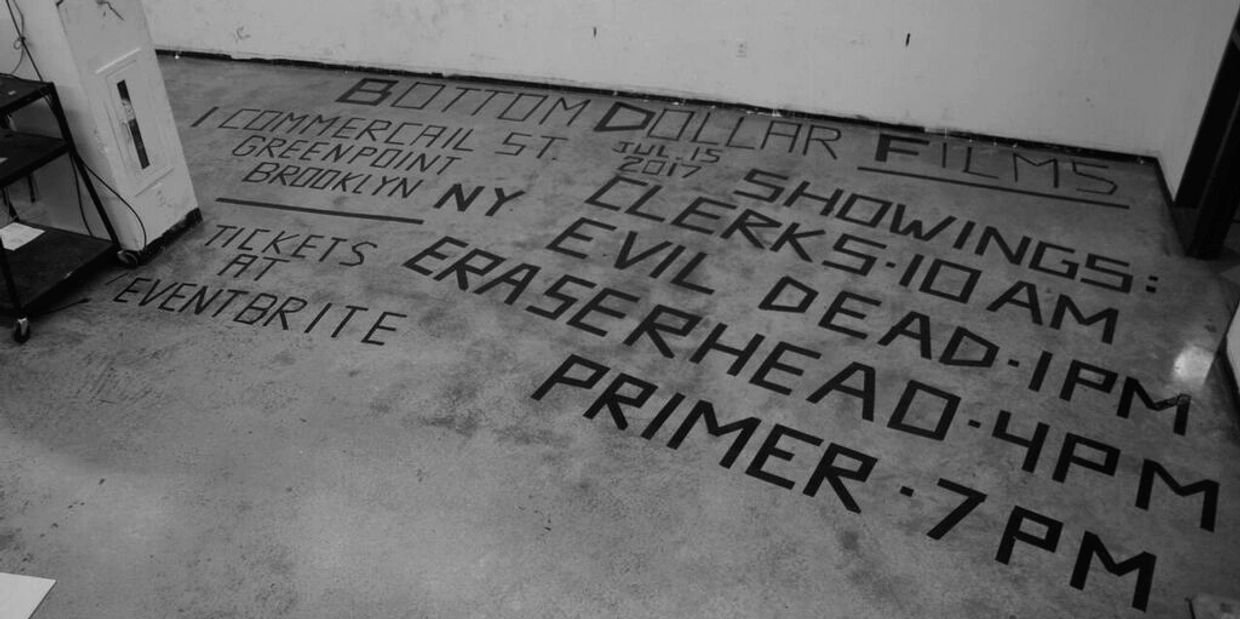 BOTTOM DOLLAR FILMS
1 COMMERCAIL ST
GREENPOINT
BROOKLYN NY
TICKETS
AT
EVENTBRITE
JUL.15
2017
SHOWINGS:
CLERKS·10 AM
EVIL DEAD·1PM
ERASERHEAD·4PM
PRIMER·7PM